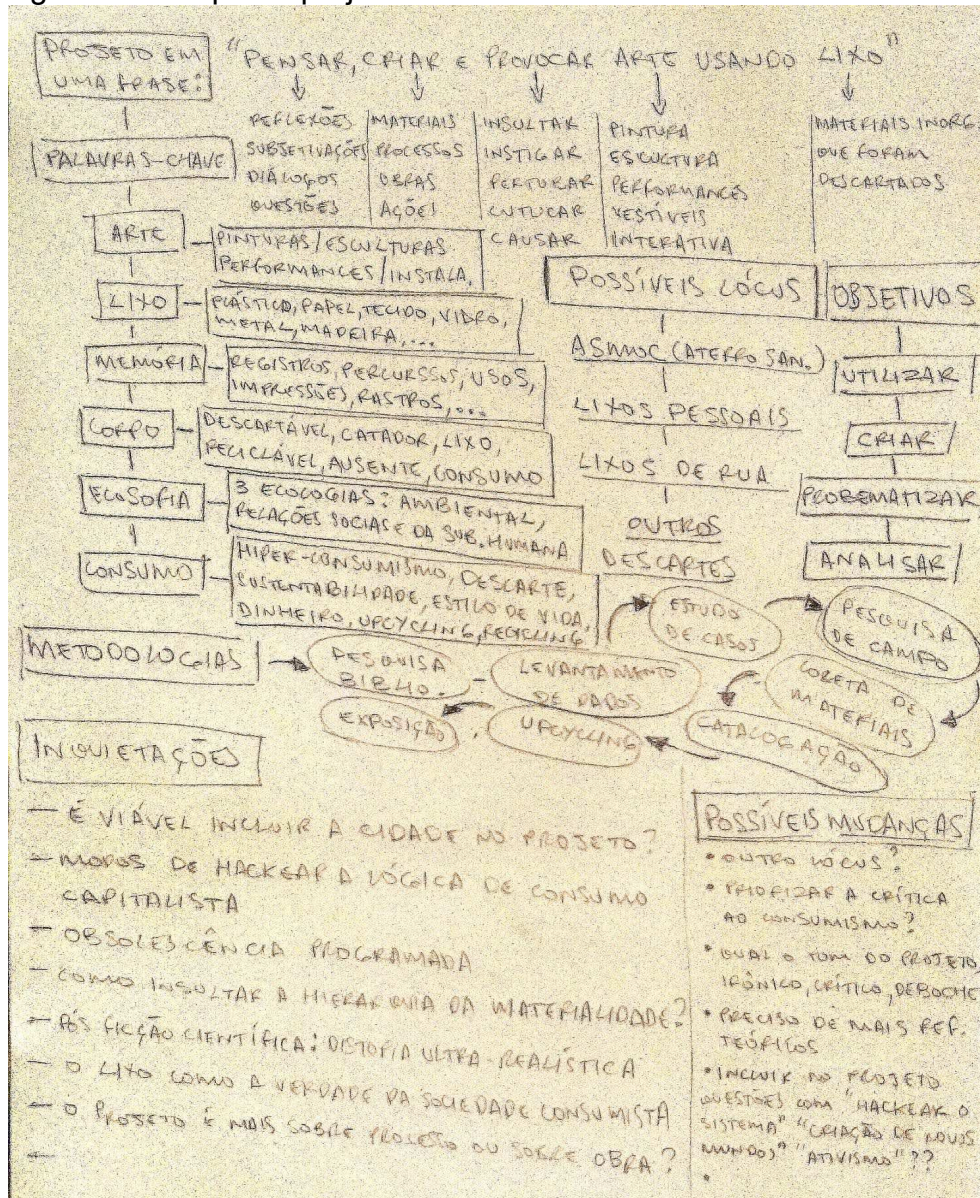 PROJETO EM
UMA FRASE:
"PENSAR, CRIAR E PROVOCAR ARTE USANDO LIXO"
REFLEXÕES
SUBJETIVAÇÕES
DIÁLOGOS
QUESTÕES
MATERIAIS
PROCESSOS
OBRAS
AÇÕES
INSULTAR
INSTIGAR
PERTURBAR
CUTUCAR
CAUSAR
PINTURA
ESCULTURA
PERFORMANCES
VESTÍVEIS
INTERATIVA
MATERIAIS INORG.
QUE FORAM
DESCARTADOS
PALAVRAS-CHAVE
ARTE
PINTURAS/ESCULTURAS
PERFORMANCES/INSTALA.
LIXO
PLÁSTICO, PAPEL, TECIDO, VIDRO,
METAL, MADEIRA,...
MEMÓRIA
REGISTROS, PERCURSSOS, USOS,
IMPRESSÕES, RASTROS,...
CORPO
DESCARTÁVEL, CATADOR, LIXO,
RECICLÁVEL, AUSENTE, CONSUMO
ECOSOFIA
3 ECOLOGIAS: AMBIENTAL,
RELAÇÕES SOCIAS E DA SUB. HUMANA
CONSUMO
HIPER-CONSUMISMO, DESCARTE,
SUSTENTABILIDADE, ESTILO DE VIDA,
DINHEIRO, UPCYCLING, RECYCLING
POSSÍVEIS LÓCUS
ASMOC (ATERRO SAN.)
LIXOS PESSOAIS
LIXOS DE RUA
OUTROS
DESCARTES
OBJETIVOS
UTILIZAR
CRIAR
PROBEMATIZAR
ANALISAR
METODOLOGIAS
PESQUISA
BIBLIO.
LEVANTAMENTO
DE DADOS
ESTUDO
DE CASOS
PESQUISA
DE CAMPO
COLETA DE
MATERIAIS
CATALOGAÇÃO
UPCYCLING
EXPOSIÇÃO
INQUIETAÇÕES
- É VIÁVEL INCLUIR A CIDADE NO PROJETO?
- MODOS DE HACKEAR A LÓGICA DE CONSUMO
CAPITALISTA
- OBSOLESCÊNCIA PROGRAMADA
- COMO INSULTAR A HIERARQUIA DA MATERIALIDADE?
- PÓS FICÇÃO CIENTÍFICA: DISTOPIA ULTRA-REALÍSTICA
- O LIXO COMO A VERDADE DA SOCIEDADE CONSUMISTA
- O PROJETO É MAIS SOBRE PROCESSO OU SOBRE OBRA?
-
POSSÍVEIS MUDANÇAS
• OUTRO LÓCUS?
• PRIORIZAR A CRÍTICA
AO CONSUMISMO?
• QUAL O TOM DO PROJETO
IRÔNICO, CRÍTICO, DEBOCHE
• PRECISO DE MAIS REF.
TEÓRICOS
• INCLUIR NO PROJETO
QUESTÕES COM "HACKEAR O
SISTEMA" "CRIAÇÃO DE NOVOS
MUNDOS" "ATIVISMO"??
•